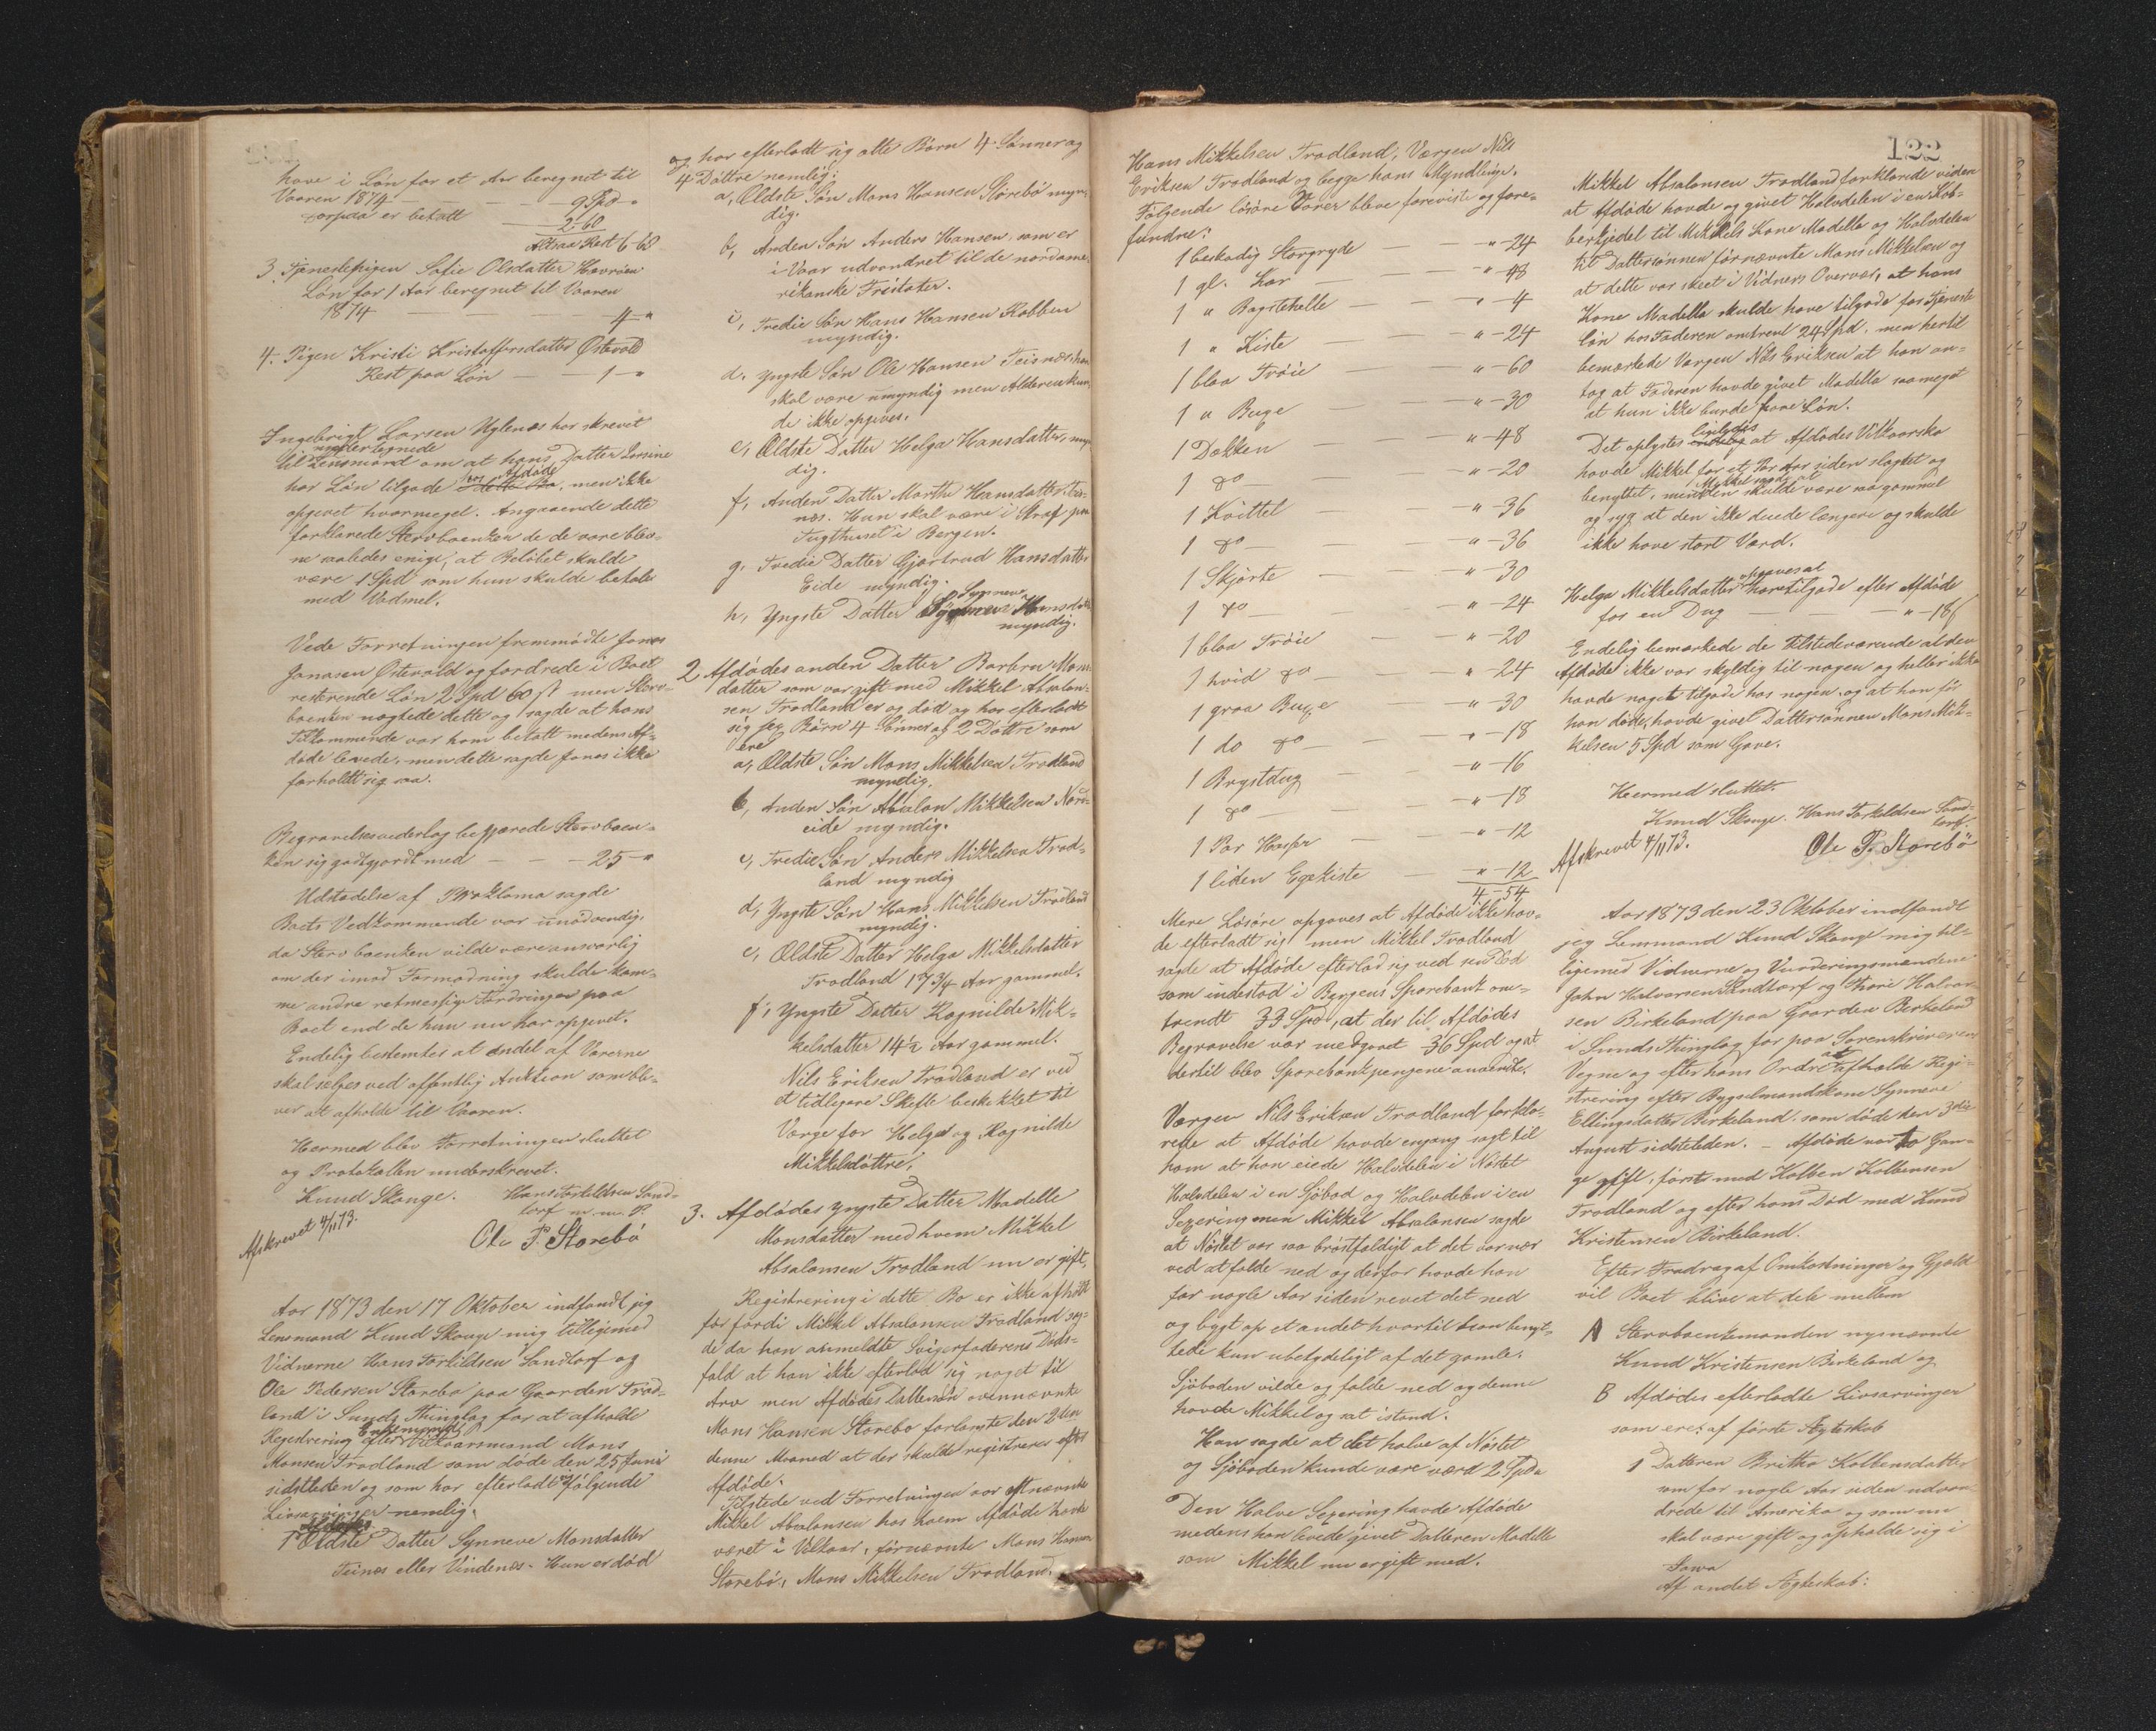 have i Løn for et Aar beregnet til
Vaaren 1874 — — — 9 Spd "
hvorpaa er betalt 2-60
Altsaa Rest 6-60
3. Tjenestepigen Sofie Olsdatter
Løn for 1 Aar beregnet til Vaaren
1874 — — — 4-"
4. Pigen Kristi Kristoffersdatter Østevold
Rest paa Løn — — 1-"
Ingebrigt Larsen Uglenæs har skrevet
undertegnede
til Lensmand om at hans Datter Larsine
hos Afdøde
har Løn tilgode i dette Bo, men ikke
opgivet hvormeget. Angaaende dette
forklarede Stervboenken de de vare blev-
ne saaledes enige, at Beløbet skulde
være 1 Spd som hun skulde betale
med Vadmel.
Vede Forretningen fremmødte Jonas
Jonasen Østevold og fordrede i Boet
resterende Løn 2 Spd 60 s men Sterv-
boenken nægtede dette og sagde at hans
Tilkommende var ham betalt medens Af-
døde levede, men dette sagde Jonas ikke
forholdt sig saa.
Begravelsesvederlag begjærede Stervboen-
ken sig godtgjordt med — — — 25-"
Udstædelse af Proklama sagde
Boets Vedkommende var unødvendig,
da Stervboenken vilde være ansvarlig
om der imod Formodning skulde kom-
me andre retmessige Fordringer paa
Boet end de hun nu har opgivet.
Endelig bestemtes at endel af Varerne
skal sælges ved offentlig Auktion som bli-
ver at afholde til Vaaren.
Hermed blev Forretningen sluttet
og Protokollen underskrevet.
Knud Skauge. Hans Torkildsen Sand-
torf m. n. P.
Afskrevet 4/11 73.
Ole P. Storebø
Aar 1873 den 17 Oktober indfandt jeg
Lensmand Knud Skauge mig tilligemed
Vidnerne Hans Torkildsen Sandtorf og
Ole Pedersen Storebø paa Gaarden Trod-
land i Sunds Thinglag for at afholde
Enkemand
Registrering efter Vilkaarsmand Mons
Monsen Trodland som døde den 25 Juni
sidstleden og som har efterladt sig følgende
Livsarvinger nemlig:
1 Ældste Datter Synneve Monsdatter
Teinæs eller Vindenæs. Hun er død
og har efterladt sig otte Børn 4 Sønner og
4 Døttre nemlig:
a, Ældste Søn Mons Hansen Storebø myn-
dig.
b, Anden Søn Anders Hansen, som er
i Vaar udvandret til de nordame-
rikanske Fristater.
c, Tredie Søn Hans Hansen Kobben
myndig.
d, Yngste Søn Ole Hansen Teisnæs, han
skal være umyndig men Alderen kun-
de ikke opgives.
e, Ældste Datter Helga Hansdatter, myn-
dig.
f, Anden Datter Martha Hansdatter Teis-
næs. Hun skal være i Straf paa
Tugthuset i Bergen.
g, Tredie Datter Gjertrud Hansdatter
Eide myndig.
Synneve
h, Yngste Datter Hansdatter
myndig.
2 Afdødes anden Datter Barbra Mons-
datter som var gift med Mikkel Absalon-
sen Trodland er og død og har efterladt
sig sex Børn 4 Sønner og 2 Døttre som
ere
a, Ældste Søn Mons Mikkelsen Trodland
myndig.
b, Anden Søn Absalon Mikkelsen Nord-
eide myndig.
c, Tredie Søn Anders Mikkelsen Trod-
land myndig
d, Yngste Søn Hans Mikkelsen Trodland
myndig.
e, Ældste Datter Helga Mikkelsdatter
Trodland 17 3/4 Aar gammel.
f, Yngste Datter Ragnilde Mik-
kelsdatter 14 1/2 Aar gammel.
Nils Eriksen Trodland er ved
et tidligere Skifte beskikket til
Værge for Helga og Ragnilde
Mikkelsdøttre.
3. Afdødes yngste Datter Madelle
Monsdatter med hvem Mikkel
Absalonsen Trodland nu er gift.
Registrering i dette Bo er ikke afholdt
før fordi Mikkel Absalonsen Trodland sag-
de da han anmeldte Svigerfaderens Døds-
fald at han ikke efterlod sig noget til
Arv men Afdødes Dattersøn ovennævnte
Mons Hansen Storebø forlangte den 2den
denne Maaned at der skulde registreres efter
Afdøde.
Tilstede ved Forretningen var oftnævnte
Mikkel Absalonsen hos hvem Afdøde havde
været i Vilkaar, førnævnte Mons Hansen
Storebø, Mons Mikkelsen Trodland,
122
Hans Mikkelsen Trodland, Værgen Nils
Eriksen Trodland og begge hans Myndlinge.
Følgende løsøre Varer bleve foreviste og fore-
fundne:
1 beskadig Storgryde — — " - 24
1 gl. Kar — — " - 48
1 " Bagstehelle — — " - 4
1 " Kiste — — " - 24
1 blaa Trøie — — " - 60
1 " Buxe — — " - 30
1 Dækken — — " - 48
1 do — — " - 20
1 Kvittel — — " - 36
1 do — — " - 36
1 Skjorte — — " - 30
1 do — — " - 24
1 blaa Trøie — — " - 20
1 hvid do — — " - 24
1 graa Buxe — — " - 30
1 do do — — " - 18
1 Brystdug — — " - 16
1 do — — " - 18
1 Par Hoser — — " - 12
1 liden Egekiste — " - 12
4 - 54
Mere Løsøre opgaves at Afdøde ikke hav-
de efterladt sig men Mikkel Trodland
sagde at Afdøde efterlod sig ved sin Død
som indestod i Bergens Sparebank om-
trendt 33 Spd, at der til Afdødes
Begravelse var medgaaet 36 Spd og at
dertil blev Sparebankpengene anvendte.
Værgen Nils Eriksen Trodland forkla-
rede at Afdøde havde engang sagt til
ham at han eiede Halvdelen i Nøstet
Halvdelen i en Sjøbod og Halvdelen i en
Sexæring men Mikkel Absalonsen sagde
at Nøstet var saa brøstfældigt at det var nær
ved at falde ned og derfor havde han
for nogle Aar siden revet det ned
og bygt op et andet hvortil han benyt-
tede kun ubetydeligt af det gamle.
Sjøboden vilde og falde ned og denne
havde Mikkel og sat istand.
Han sagde at det halve af Nøstet
og Sjøboden kunde være værd 2 Spd "
Den Halve Sexæring havde Afdøde
medens han levede givet Datteren Madelle
som Mikkel nu er gift med.
Mikkel Absalonsen Trodland forklarede viden
at Afdøde havde og givet Halvdelen i en Kob-
berkjedel til Mikkels Kone Madelle og Halvdelen
til Dattersønnen førnævnte Mons Mikkelsen og
at dette var skeet i Vidners Overvær, at hans
Kone Madelle skulde have tilgode for Tjeneste
løn hos Faderen omtrent 24 Spd, men hertil
bemærkede Værgen Nils Eriksen at han an-
tog at Faderen havde givet Madelle saameget
at hun ikke burde have Løn.
ligeledes
Det oplystes at Afdødes Vilkaarsko
havde Mikkel for et Par Aar siden slagtet og
Mikkel sagde at
benyttet, men den skulde være saa gammel
og syg at den ikke duede længere og skulde
ikke have stort Værd.
opgaves at
Helga Mikkelsdatter have tilgode efter Afdøde
for en Dug — — " - 18
Endelig bemærkede de Tilstedeværende at den
Afdøde ikke var skyldig til nogen og heller ikke
havde noget tilgode hos nogen og at han før
han døde, havde givet Dattersønnen Mons Mik-
kelsen 5 Spd som Gave.
Hermed sluttet.
Knud Skauge. Hans Torkildsen Sand-
torf.
Afskrevet 4/11 73.
Ole P. Storebø
Aar 1873 den 23 Oktober indfandt
jeg Lensmand Knud Skauge mig til-
ligemed Vidnerne og Vurderingsmændene
John Halvorsen Sandtorf og Thore Halvor-
sen Birkeland paa Gaarden Birkeland
i Sunds Thinglag for paa Sorenskriverens
Vegne og efter hans Ordre at afholde Regi-
strering efter Bygselmandskone Synneve
Ellingsdatter Birkeland som døde den 3die
August sidstleden. — Afdøde var to Gan-
ge gift, først med Kolben Kolbensen
Trodland og efter hans Død med Knud
Kristensen Birkeland.
Efter Fradrag af Omkostninger og Gjæld
vil Boet blive at dele mellem
A Stervboenkemanden nysnævnte
Knud Kristensen Birkeland og
B Afdødes efterladte Livsarvinger
som ere: af første Ægteskab
1 Datteren Britha Kolbensdatter
som for nogle Aar siden udvan-
drede til Amerika og som nu
skal være gift og opholde sig i
Iowa
Af andet Ægteskab: